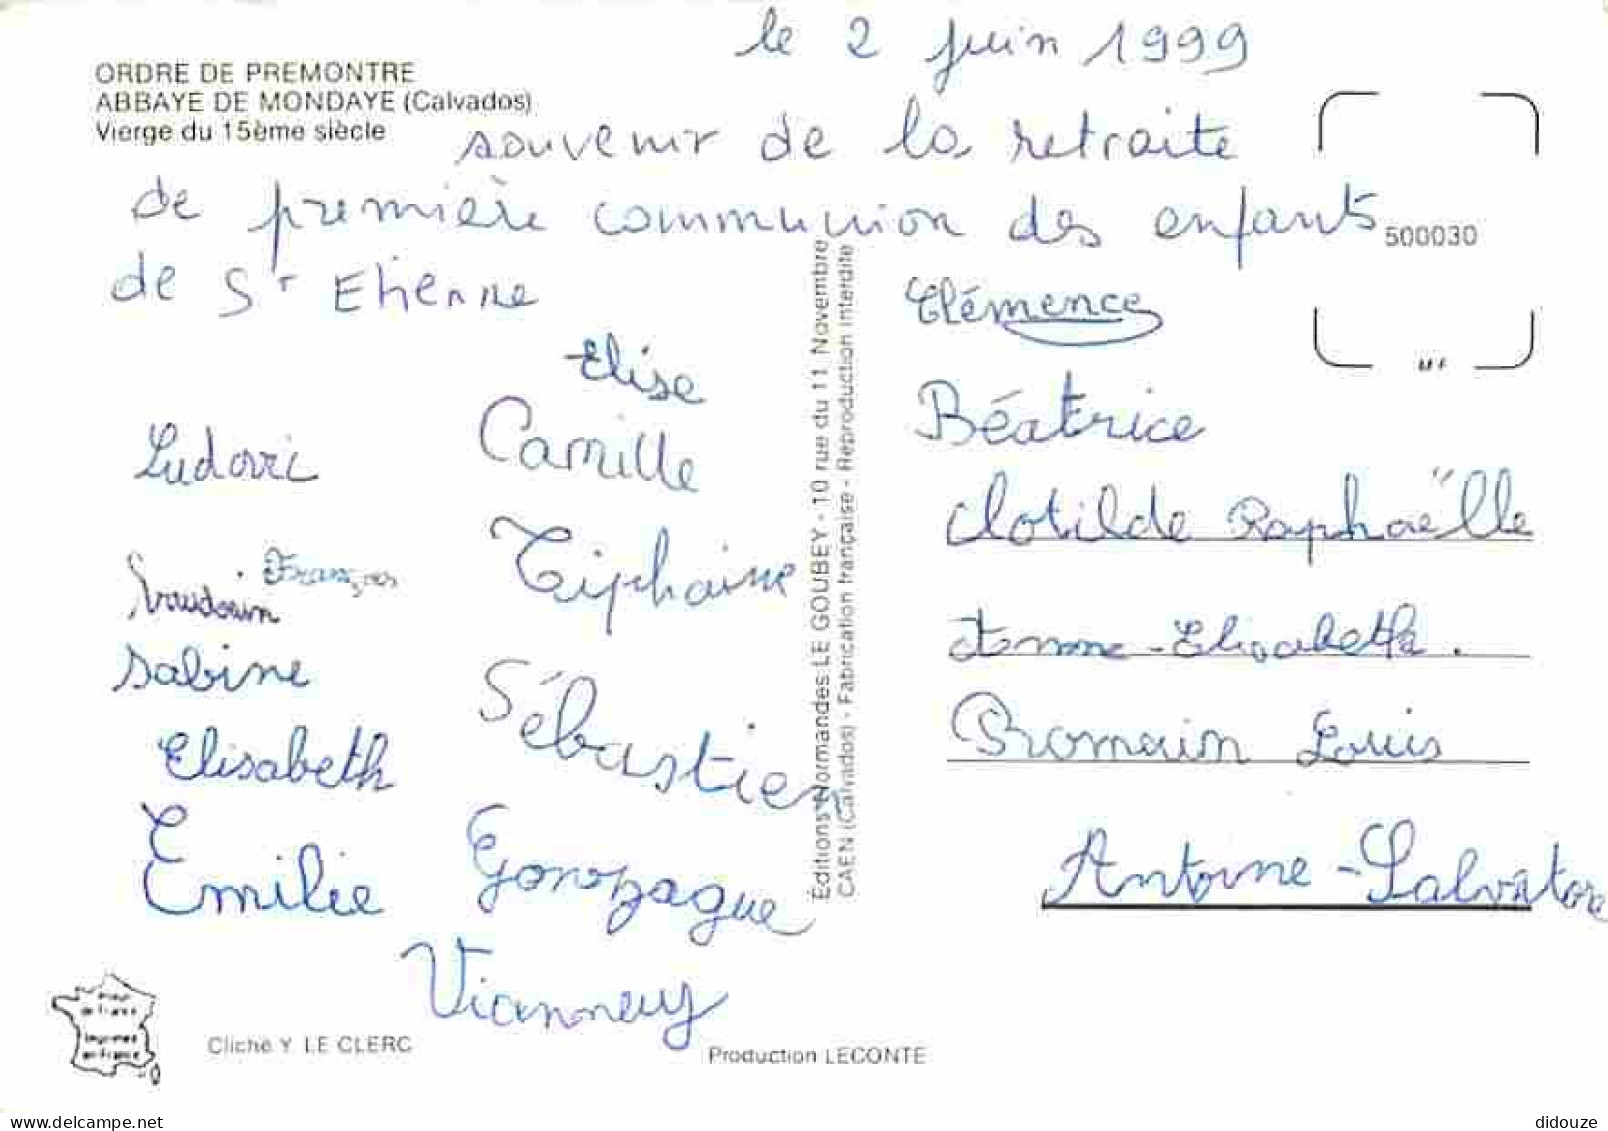 le 2 juin 1999
ORDRE DE PREMONTRE
ABBAYE DE MONDAYE (Calvados)
Vierge du 15ème siècle
souvenir de la retraite
de première communion des enfants
de St Etienne
500030
Elise
Ludovic
Camille
François
Tiphaine
Sabine
Sébastien
Elisabeth
Emilie
Gonzague
Vianney
Éditions Normandes LE GOUBEY - 10 rue du 11 Novembre
CAEN (Calvados) - Fabrication française - Reproduction interdite
Clémence
Béatrice
Clotilde Raphaëlle
Anne-Elisabeth.
Romain Louis
Antoine-Salvatore
de France
Imprimée
en France
Cliché Y. LE CLERC
Production LECONTE
www.delcampe.net
didouze